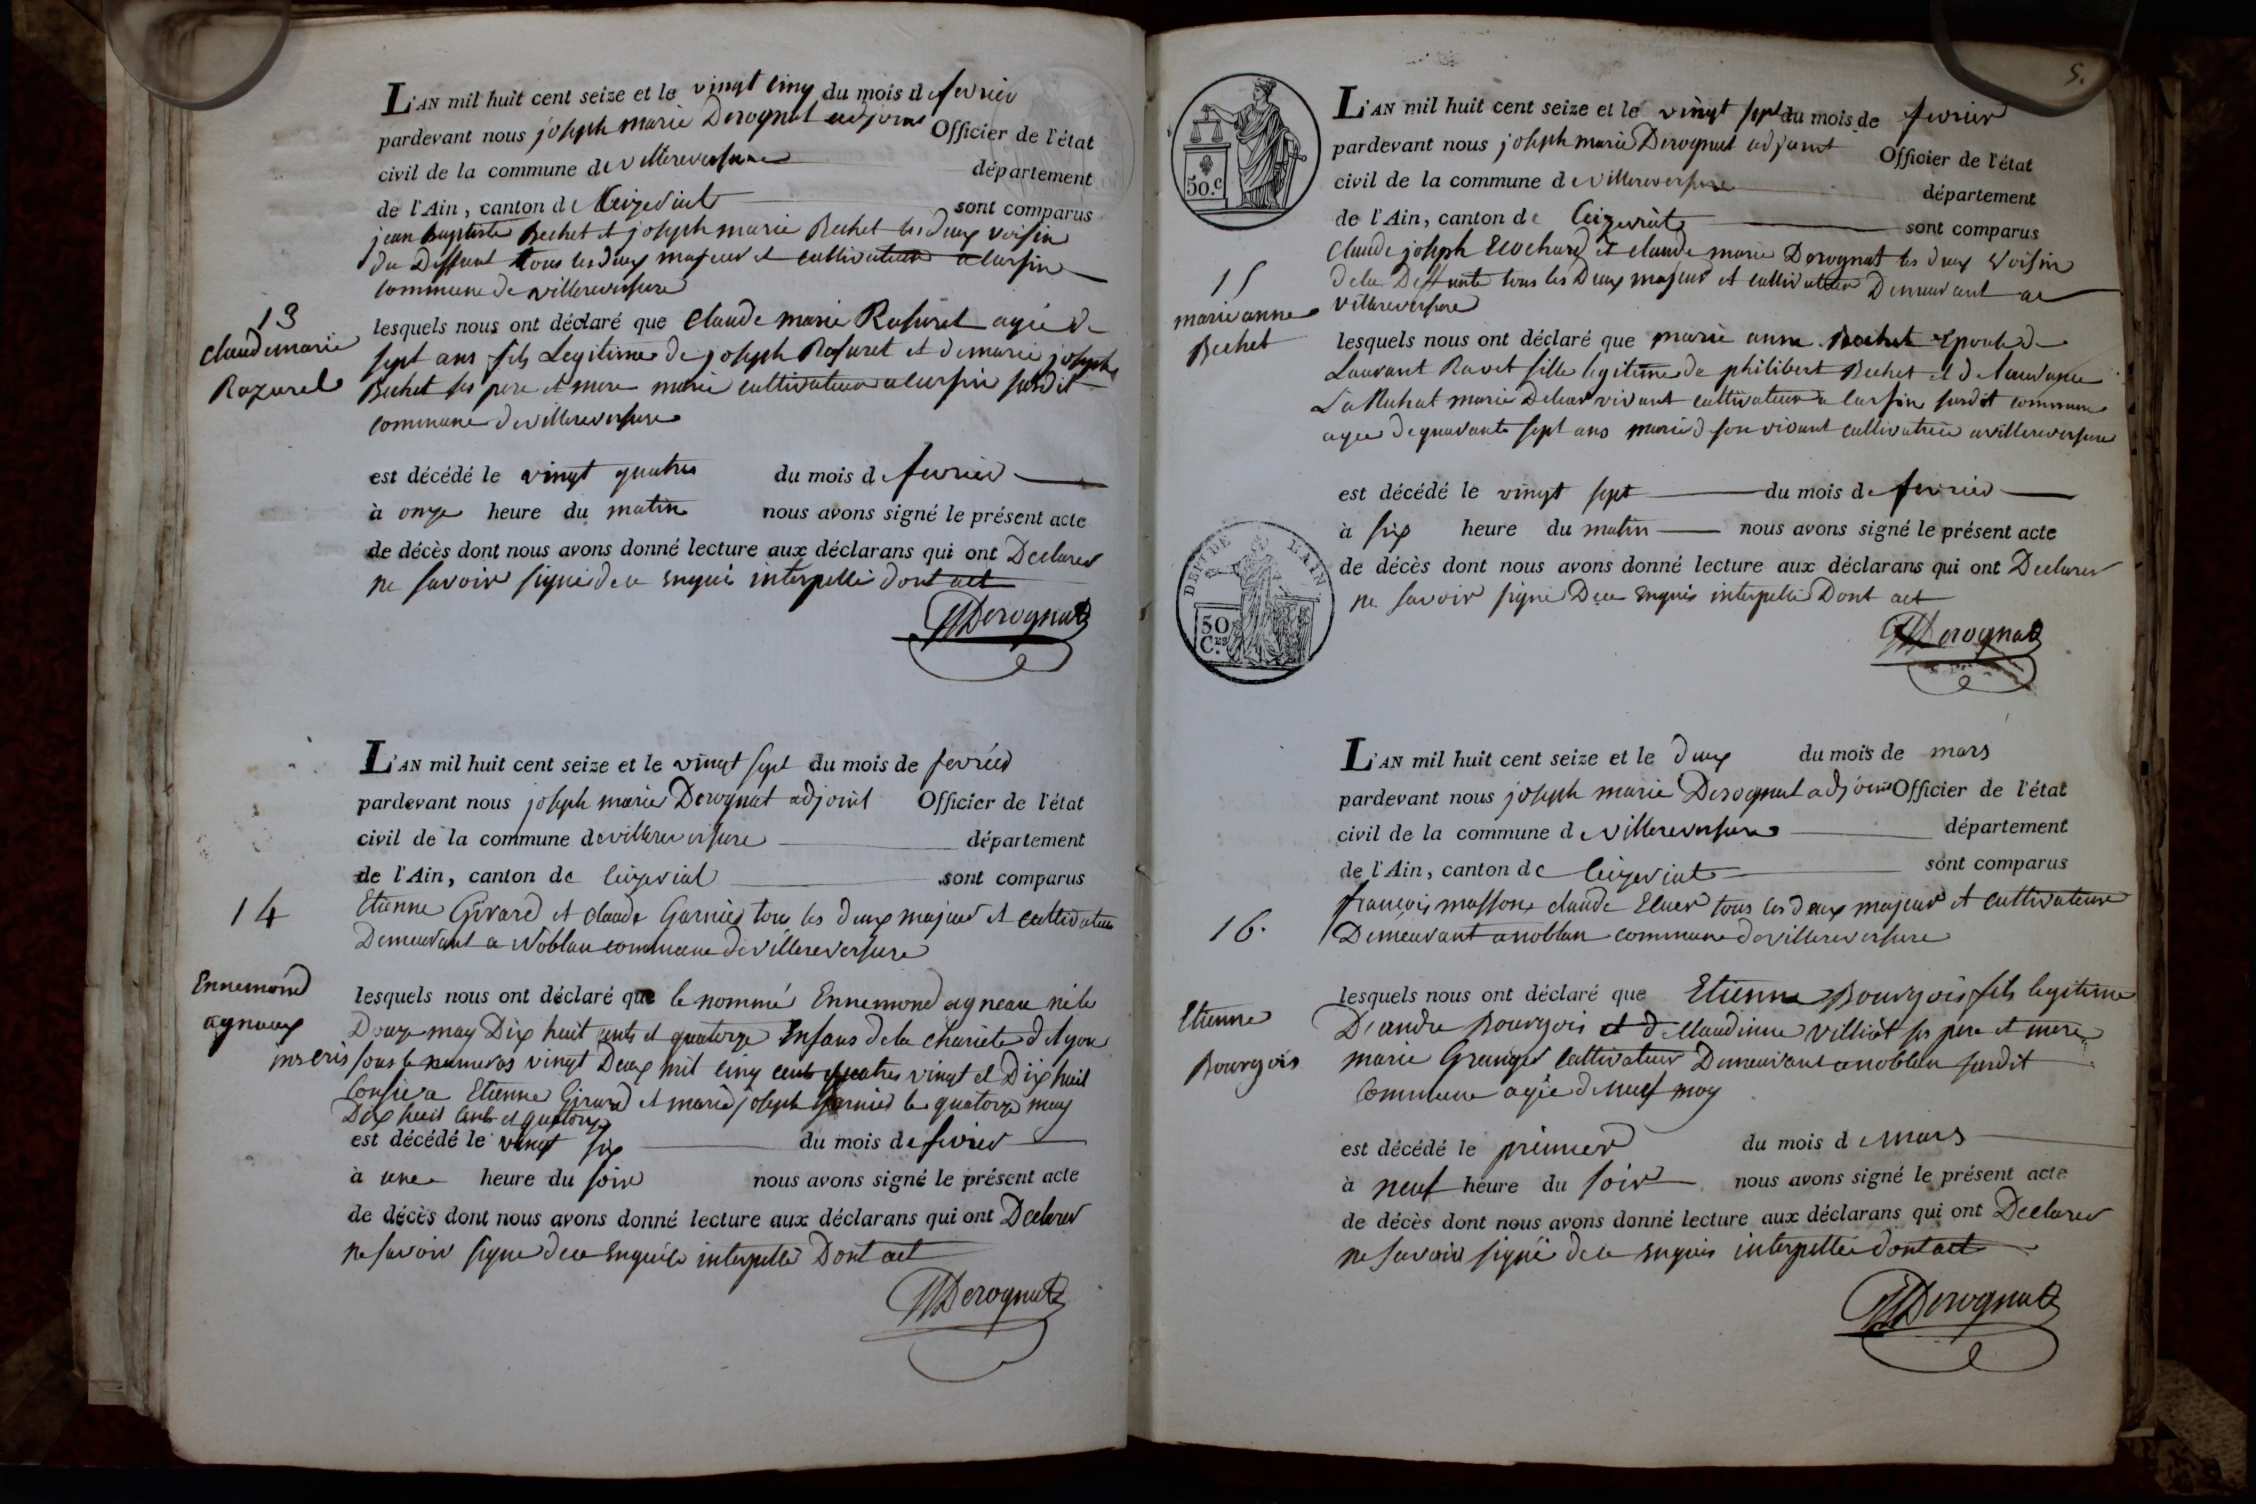 L'AN mil huit cent seize et le vingt cinq du mois de fevrier
pardevant nous joseph marie Derognat adjoint Officier de l'état
civil de la commune de villereversure département
de l'Ain, canton de Ceizeriat sont comparus
jean Baptiste Bechet et joseph marie Bechet les deux voisin
du Deffunt tous les deux majeur et cultivateur a Cursin
commune de villereversure
13
claude marie
Razurel
lesquels nous ont déclaré que Claude marie Rasurel agée de
sept ans fils Legitime de joseph Rasurel et de marie joseph
Bechet ses pere et mere marié cultivateur a Cursin surdit
commune de villereversure
est décédé le vingt quatre du mois de fevrier
à onze heure du matin nous avons signé le présent acte
de décès dont nous avons donné lecture aux déclarans qui ont Declarer
ne savoir signé de ce enquis interpellé dont act
JMDerognat
L'AN mil huit cent seize et le vingt sept du mois de fevrier
pardevant nous joseph marie Derognat adjoint Officier de l'état
civil de la commune de villereversure département
de l'Ain, canton de Ceizeriat sont comparus
Etienne Girard et claude Garnier tous les deux majeur et cultivateur
Demeurant a Noblan commune de villereversure
14
Ennemond
agneaux
lesquels nous ont déclaré que le nommé Ennemond agneau né le
Douze may Dix huit cents et quatorze Enfans de la charieté de Lyon
inscris sous le numeros vingt Deux mil cinq cent quatres vingt et Dix huit
Confié a Etienne Girard et marie joseph Garnier le quatorze may
Dix huit cent et quatorze
est décédé le vingt six du mois de fevrier
à une heure du soir nous avons signé le présent acte
de décès dont nous avons donné lecture aux déclarans qui ont Declarer
ne savoir signe de ce Enquis interpellé Dont act
JMDerognat
5.
50.c
L'AN mil huit cent seize et le vingt sept du mois de fevrier
pardevant nous joseph marie Derognat adjoint Officier de l'état
civil de la commune de villereversure département
de l'Ain, canton de Ceizeriat sont comparus
Claude joseph et claude marie Derognat les deux voisin
de la Deffunte tous les Deux majeur et cultivateur Demeurant a
villereversure
15
marie anne
Bechet
lesquels nous ont déclaré que marie anne Bechet Epouse de
Laurant Ravet fille legitime de philibert Bechet et de
marié De leur vivant cultivateur a Cursin surdit commune
agée de quarante sept ans marié de son vivant cultivatrice a villereversure
est décédé le vingt sept du mois de fevrier
à six heure du matin nous avons signé le présent acte
de décès dont nous avons donné lecture aux déclarans qui ont Declarer
ne savoir signé De ce enquis interpellé Dont act
DEPT DE L'AIN
50
CES
JMDerognat
L'AN mil huit cent seize et le deux du mois de mars
pardevant nous joseph marie Derognat adjoint Officier de l'état
civil de la commune de villereversure département
de l'Ain, canton de Ceizeriat sont comparus
françois masson claude tous les deux majeur et cultivateur
Demeurant a noblan commune de villereversure
16.
Etienne
Bourgois
lesquels nous ont déclaré que Etienne Bourgois fils legitime
De andre Bourgois et de Claudinne villiot ses pere et mere
marié Granger cultivateur Demeurant a noblan surdit
Commune agée de neuf moy
est décédé le premier du mois de mars
à neuf heure du soir nous avons signé le présent acte
de décès dont nous avons donné lecture aux déclarans qui ont Declarer
ne savoir signé de ce enquis interpellé dont act
JMDerognat